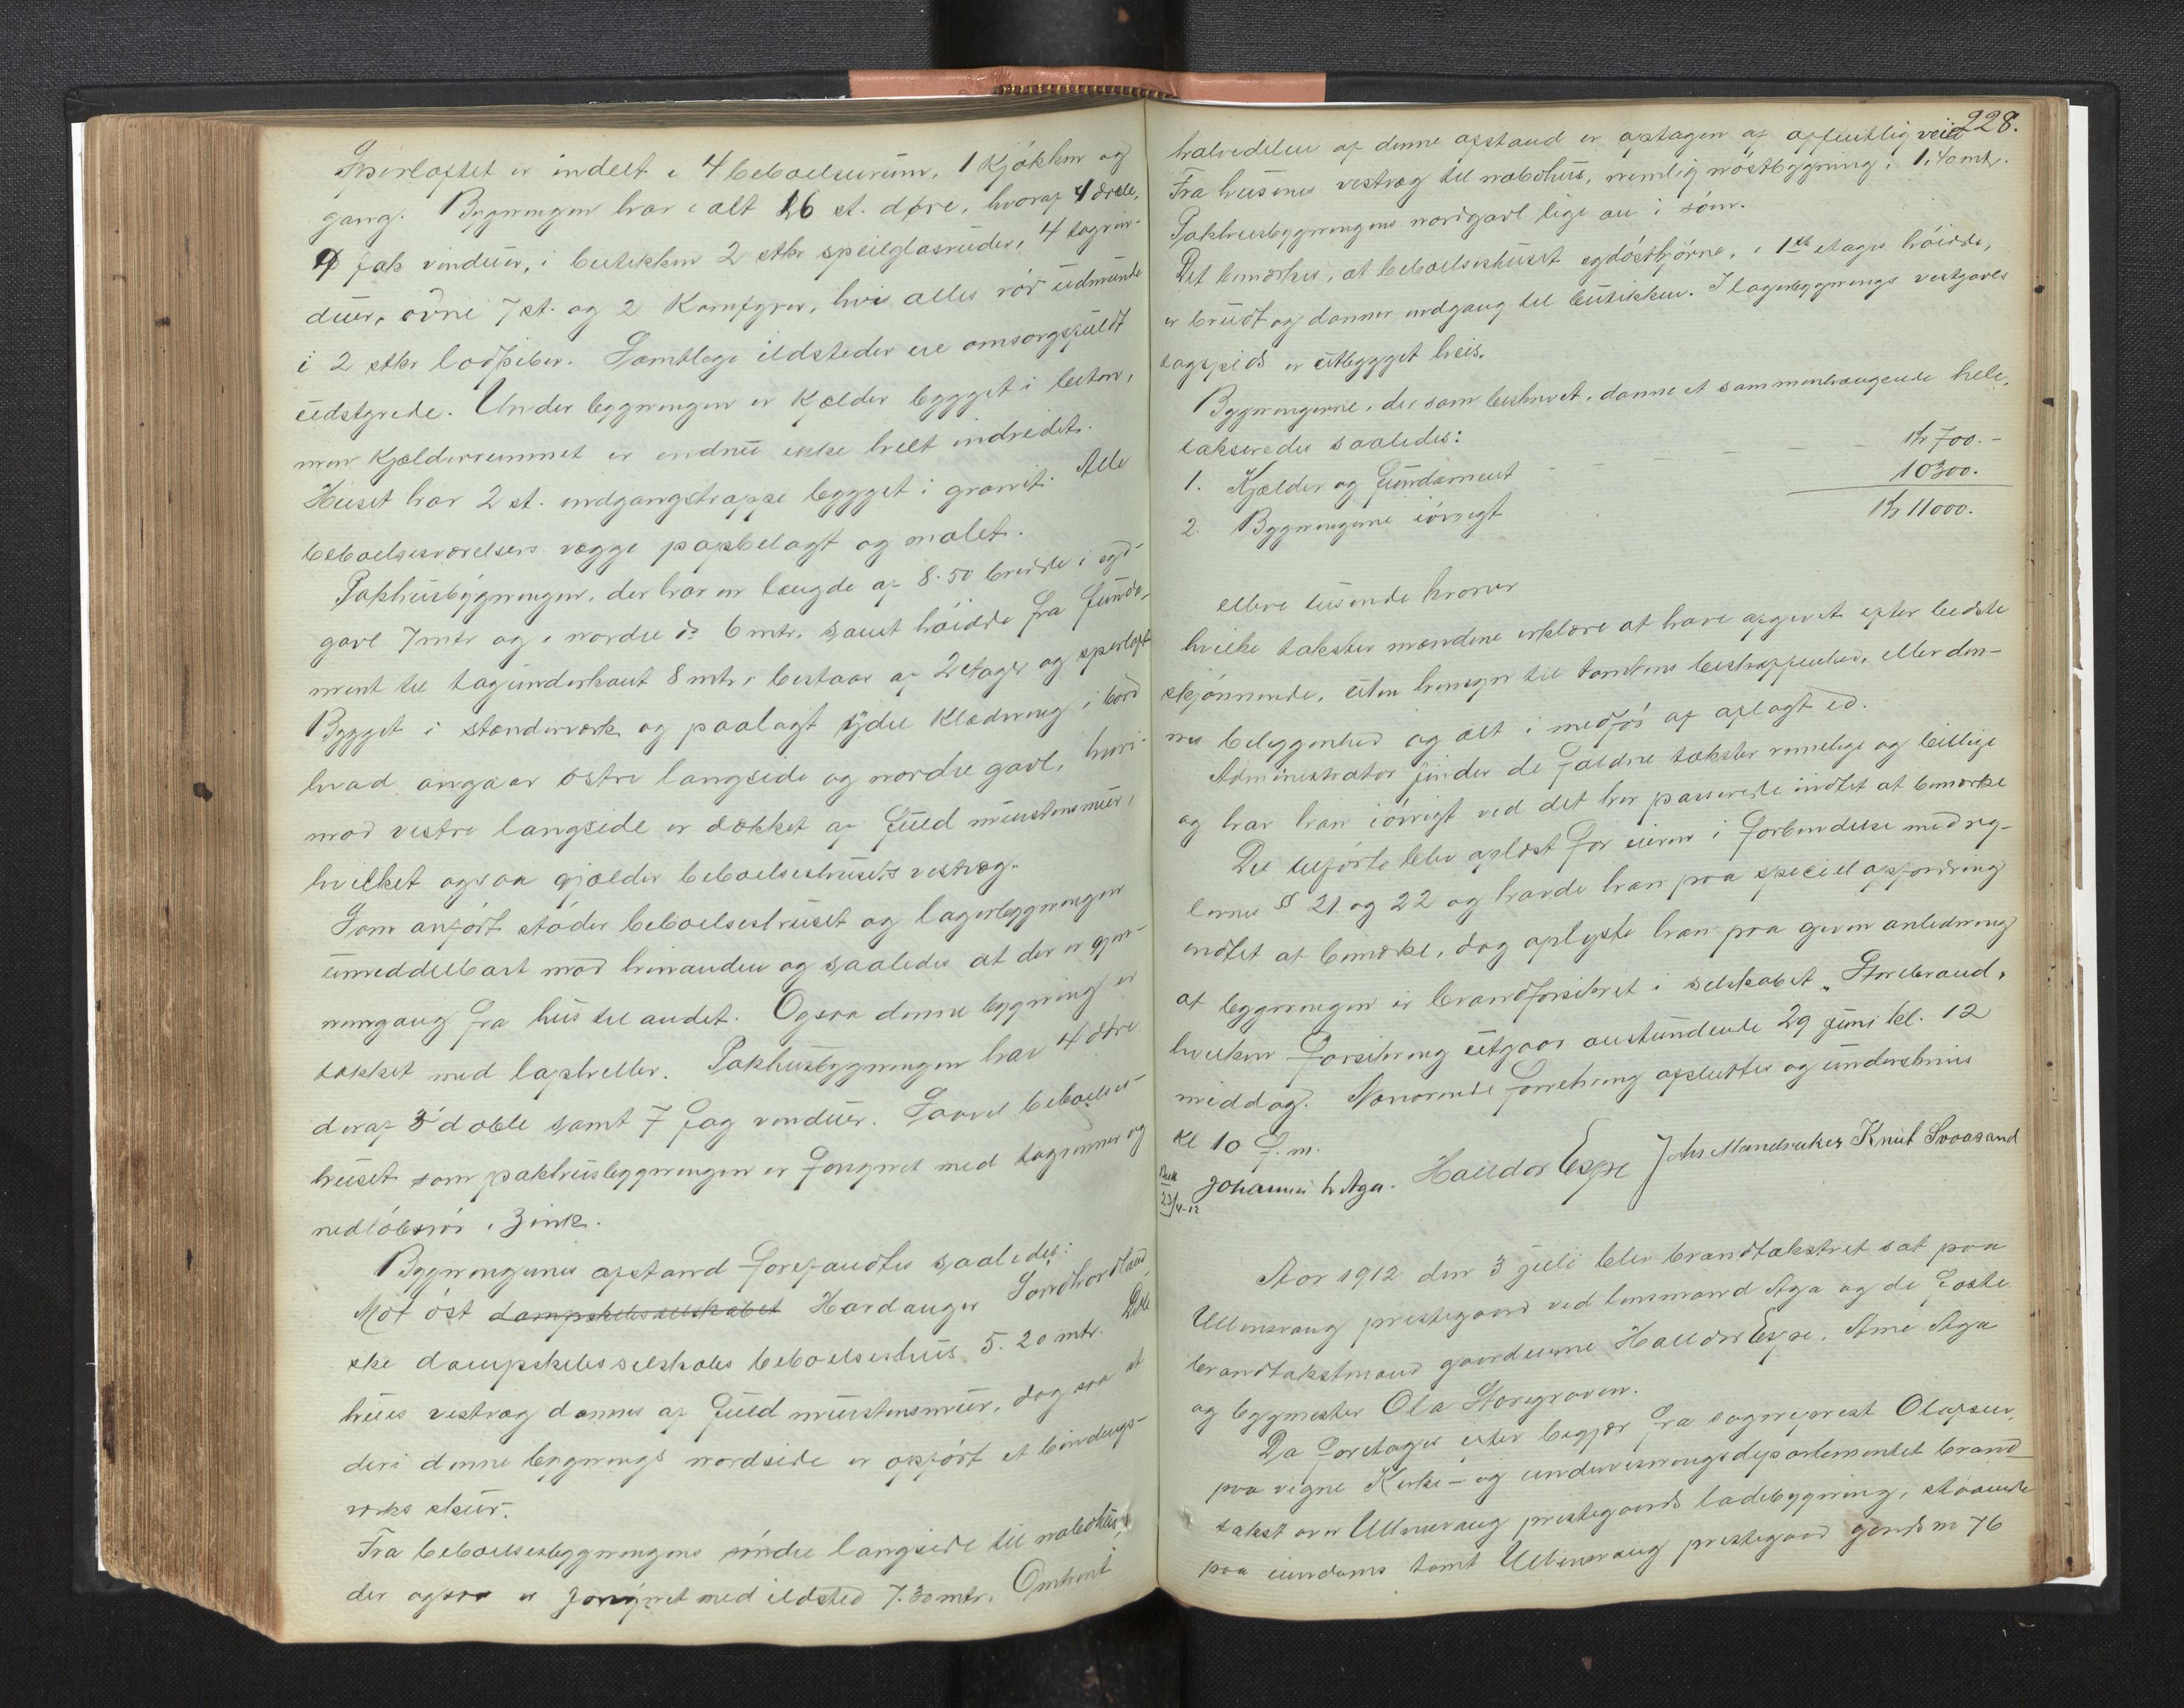 Sperloftet er indelt i 4 beboelsesrum, 1 kjøkken og
gang. Bygningen har i alt 26 st. døre, hvoraf 4 doble,
9 fak vinduer, i butikken 2 stkr speilglasruder, 4 tagvin-
duer, ovne 7 st. og 2 komfyrer, hvis alles rør udmunde
i 2 stkr lodpiber. Samtlege ildsteder ere omsorgsfuldt
udstyrede. Under bygningen er kjælder bygget i beton,
men kjælderrummet er endnu ikke helt indredet.
Huset har 2 st. indgangstrappe bygget i granit. Alle
beboelsesværelsers vægge papbelagt og malet.
Pakhusbygningen, der har en længde af 8.50 bredde i syd-
gavl 7 mtr og i nordre do 6 mtr, samt høidde fra funda-
ment til tagunderkant 8 mtr, bestaar af 2 etager og sperloft
Bygget i stænderværk og paalagt ydre klædning i bord
hvad angaar østre langside og nordre gavl, hvori-
mod vestre langside er dækket af fuld murstensmur,
hvilket ogsaa gjælder beboelseshusets vestvæg.
Som anført støder beboelseshuset og lagerbygningen
umiddelbart mod hinanden og saaledes at der er gjen-
nemgang fra hus til andet. Ogsaa denne bygning er
tækket med lapheller. Pakhusbygningen har 4 døre
deraf 3 doble samt 7 fag vinduer. Saavel beboelses-
huset som pakhusbygningen er forsynet med tagrenner og
nedløbsrør i zink.
Bygningernes afstand forefandtes saaledes:
Mot øst dampskibsselskabet Hardanger Søndhordland
ske dampskibsselskabs beboelseshus 5.20 mtr. Dette
huses vestvæg dannes af fuld murstensmur, dog saa at
der i denne bygnings nordside er opført et bindings-
verks skur.
Fra beboelsesbygningens søndre langside til nabohus,
der ogsaa er forsynet med ildsted 7.30 mtr. Omtrent
228.
halvedelen af denne afstand er optagen af offentlig vei
Fra husenes vestvæg til nabohus, nemlig nøstbygning, 1,40 mtr.
Pakhusbygningens nordgavl lige an i søen.
Det bemærkes, at beboelseshuset sydøsthjørne, i 1ste etages høidde,
er brudt og danner indgang til butikken. I lagerbygnings vestgavls
tagspids er utbygget heis.
Bygningerne, der som beskrevet, danne et sammenhængende hele,
takseredes saaledes:
1. Kjælder og fundament - - - - - Kr 700.-
2. Bygningerne iøvrigt 10300.
Kr 11000.
elleve tusende kroner
hvilke takster mændene erklære at have afgivet efter bedste
skjønnende, uten hensyn til tomtens beskaffenhed, eller den-
nes beleggenhed og alt i medfør af aflagt ed.
Administrator finder de fældne takster rimelige og billige
og har han iøvrigt ved det her passerede indtet at bemærke
Det tilførte blev oplæst for eieren i forbindelse med reg-
lernes §§ 21 og 22 og havde han paa speciel opfordring
indtet at bemærke, dog oplyste han paa given anledning
at bygningen er brandforsikret i selskabet "Storebrand,
hvilken forsikring utgaar anstundende 29 juni kl. 12
middag. Nærværende forretning afsluttes og underskrives
kl 10 f.m.
23/4-12
Johannes L Aga. Halldor Espe Johs Mandraker Knut Svaasand
Aar 1912 den 3 juli blev brandtakstret sat paa
Ullensvang prestegaard ved lensmand Aga og de faste
brandtakstmænd gaardeierne Halldor Espe, Arne Aga
og bygmester Ola Storegraven.
Da foretages efter begjær fra sogneprest Olafsen,
paa vegne Kirke- og undervisningsdepartementet brand-
takst over Ullensvang prestegaards ladebygning, staaende
paa eiendoms tomt Ullensvang prestegaard gaards nr 76